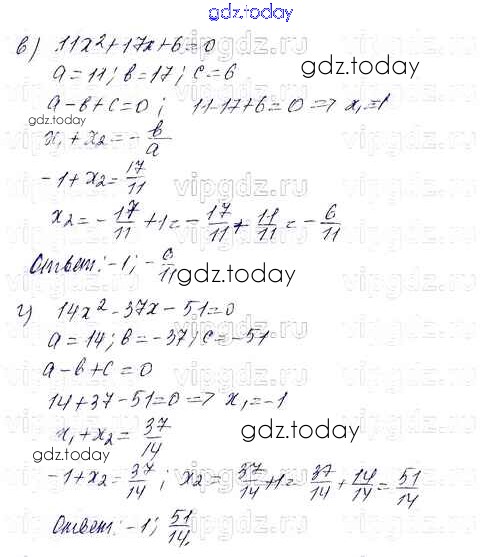 gdz.today
в) 11x²+17x+6=0
a=11; в=17; c=6
a-в+c=0; 11-17+6=0=> x₁=-1
gdz.today
x₁+x₂=-в/a
-1+x₂=17/11
x₂=-17/11+1=-17/11+11/11=-6/11
Ответ:-1;-6/11
gdz.today
г) 14x²-37x-51=0
a=14; в=-37; c=-51
a-в+c=0
gdz.today
14+37-51=0=> x₁=-1
x₁+x₂=37/14
gdz.today
-1+x₂=37/14; x₂=37/14+1=37/14+14/14=51/14
Ответ:-1; 51/14.
gdz.today